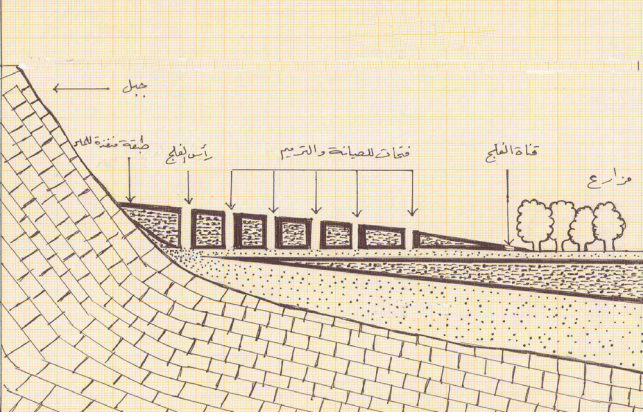 جبل
طبقة منفذة للماء
رأس الفلج
فتحات للصيانة والترميم
قناة الفلج
مزارع